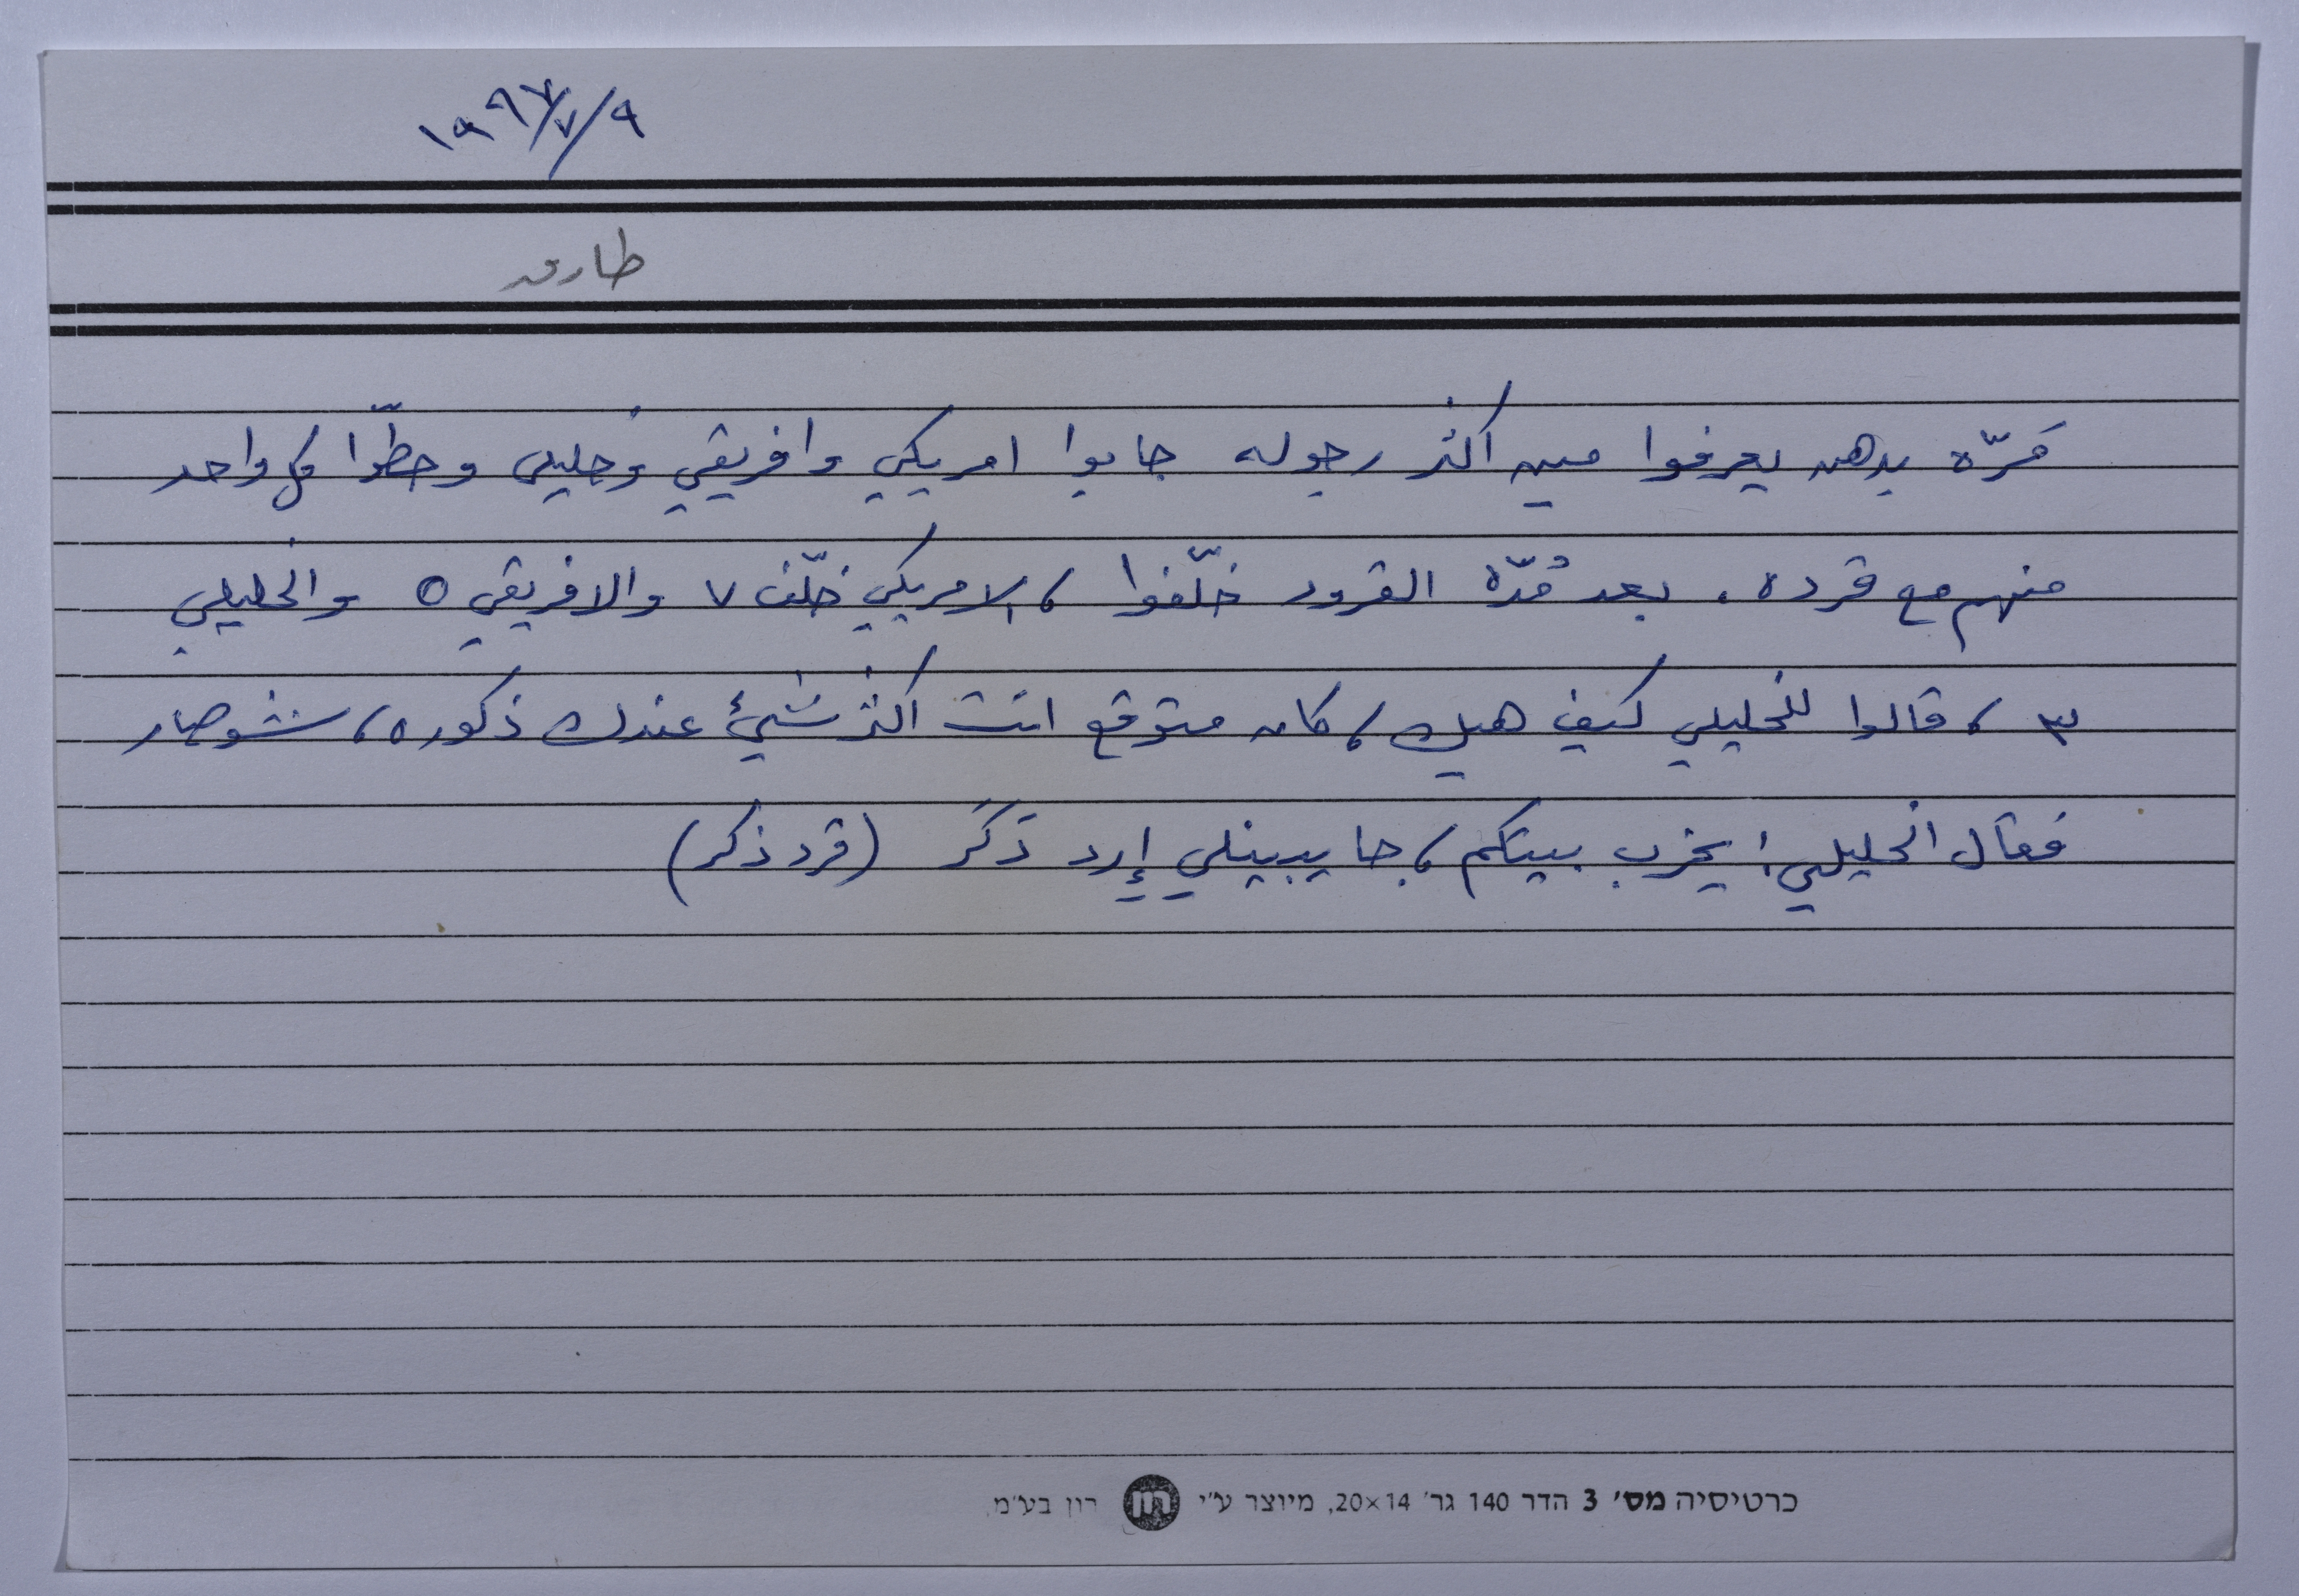 ١٩٩٧/٧/٩
طارق
مَرّه بدهن يعرفوا مين اكثر رجوله جابوا امريكي وافريقي وخليلي وحطّوا كل واحد
منهم مع قرده . بعد مُدّه القرود خلّفوا ، الامريكي خلّف ٧ والافريقي ٥ والخليلي
٣ ، قالوا للخليلي كيف هيك ، كان متوقع انت اكثر شيئ عندك ذكوره ، شو صار
فقال الخليلي : يخرب بيتكم ، جايبينلي إرد ذَكَر (قرد ذكر)
כרטיסיה מס׳ 3 הדר 140 גר׳ 20×14, מיוצר ע״י רון בע״מ